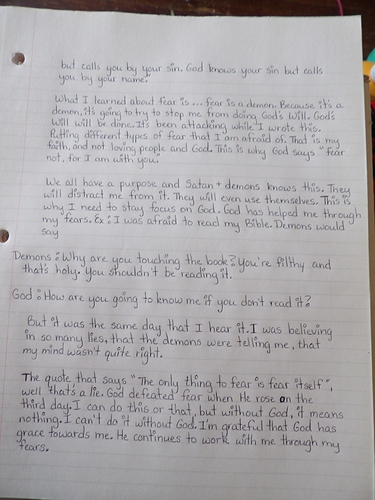 but calls you by your sin. God knows your sin but calls
you by your name."
What I learned about fear is... fear is a demon. Because it's a
demon, it's going to try to stop me from doing God's Will. God's
Will will be done. It's been attacking while I wrote this.
Putting different types of fear that I am afraid of. That is my
faith, and not loving people and God. This is why God says "fear
not, for I am with you.
We all have a purpose and Satan + demons knows this. They
will distract me from it. They will even use themselves. This is
why I need to stay focus on God. God has helped me through
my fears. Ex: I was afraid to read my Bible. Demons would
say
Demons: Why are you touching the book? You're filthy and
that's holy. You shouldn't be reading it.
God: How are you going to know me if you don't read it?
But it was the same day that I hear it. I was believing
in so many lies, that the demons were telling me, that
my mind wasn't quite right.
The quote that says "The only thing to fear is fear itself",
well that's a lie. God defeated fear when He rose on the
third day. I can do this or that, but without God, it means
nothing. I can't do it without God. I'm grateful that God has
grace towards me. He continues to work with me through my
fears.